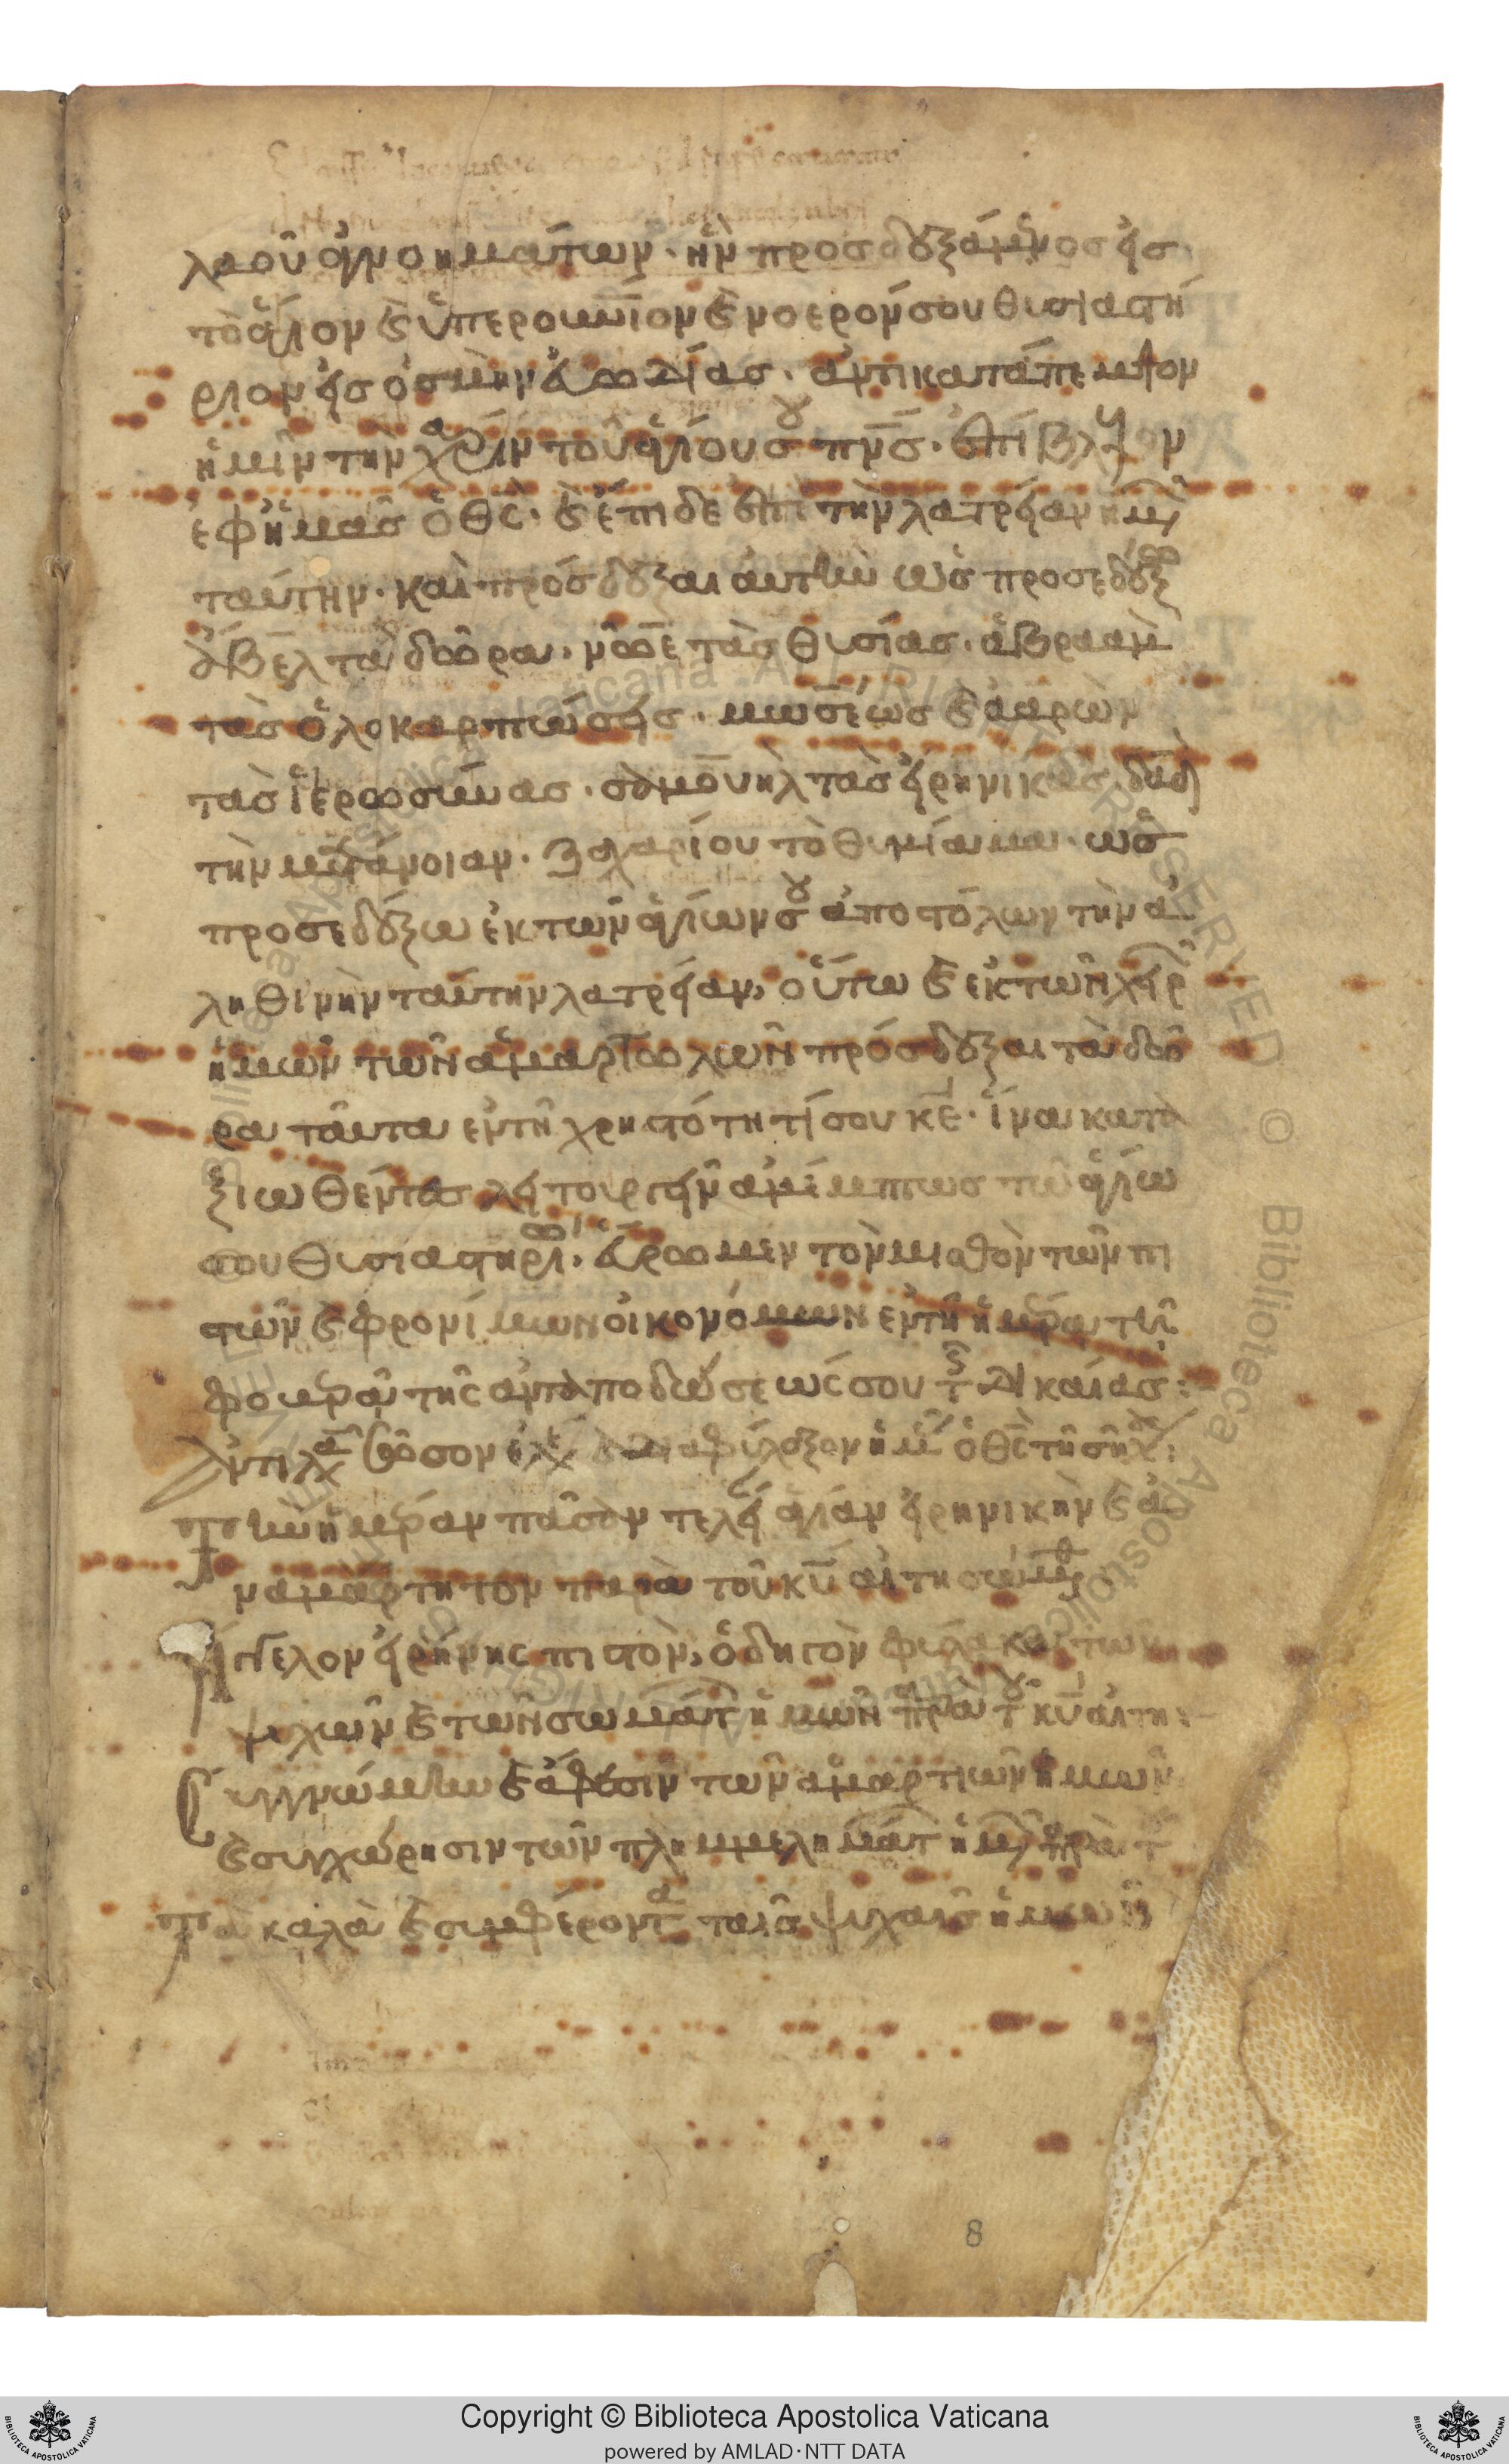 λαοῦ ἀγνοημάτων· ἣν προσδεξάμενος εἰς
τὸ ἅγιον καὶ ὑπερουράνιον καὶ νοερόν σου θυσιαστή
ριον εἰς ὀσμὴν εὐωδίας· ἀντικατάπεμψον
ἡμῖν τὴν χάριν τοῦ ἁγίου σου πνς· ἐπίβλεψον
ἐφ ἡμᾶς ὁ θς· καὶ ἔπιδε ἐπὶ τὴν λατρείαν ἡμῶν
ταύτην· καὶ πρόσδεξαι αὐτὴν ὡς προσεδέξω
ἄβελ τὰ δῶρα· νῶε τὰς θυσίας· ἀβραὰμ
τὰς ὁλοκαρπώσεις· μωσέως καὶ ἀαρὼν
τὰς ἱερωσύνας· σαμουὴλ τὰς εἰρηνικάς· δαδ
τὴν μετάνοιαν· ζαχαρίου τὸ θυμίαμα· ὡς
προσεδέξω ἐκ τῶν ἁγίων σου ἀποστόλων τὴν ἀ
ληθινὴν ταύτην λατρείαν, οὕτω καὶ ἐκ τῶν χειρῶν
ἡμῶν τῶν ἁμαρτωλῶν πρόσδεξαι τὰ δῶ
ρα ταῦτα ἐν τῆ χρηστότητί σου κε· ἵνα κατα
ξιωθέντες λειτουργεῖν ἀμέμπτως τῶ ἁγίω
σου θυσιαστηρίω· εὕρωμεν τὸν μισθὸν τῶν πι
στῶν καὶ φρονίμων οἰκονόμων ἐν τῆ ἡμέρα τῆ
φοβερᾶ τῆς ἀνταποδώσεώς σου τῆς δικαίας:
Ἀντιλαβοῦ σῶσον ἐλέησον καὶ διαφύλαξον ἡμᾶς ὁ θς τῆ σῆ χ:
Τὴν ἡμέραν πᾶσαν τελεί ἁγίαν εἰρηνικὴν καὶ ἀ
ναμάρτητον παρὰ τοῦ κυ αἰτησώμεθ
Ἄγγελον εἰρήνης πιστὸν, ὁδηγὸν φύλακα τῶν
ψυχῶν καὶ τῶν σωμάτ ἡμῶν παρὰ τοῦ κυ αἰτη:
Συγγνώμην καὶ ἄφεσιν τῶν ἁμαρτιῶν ἡμῶν
καὶ συγχώρησιν τῶν πλημμελημάτ ἡμῶν παρὰ τ
Τὰ καλὰ καὶ συμφέροντα ταῖς ψυχαῖς ἡμῶν
8
Copyright © Biblioteca Apostolica Vaticana
powered by AMLAD·NTT DATA